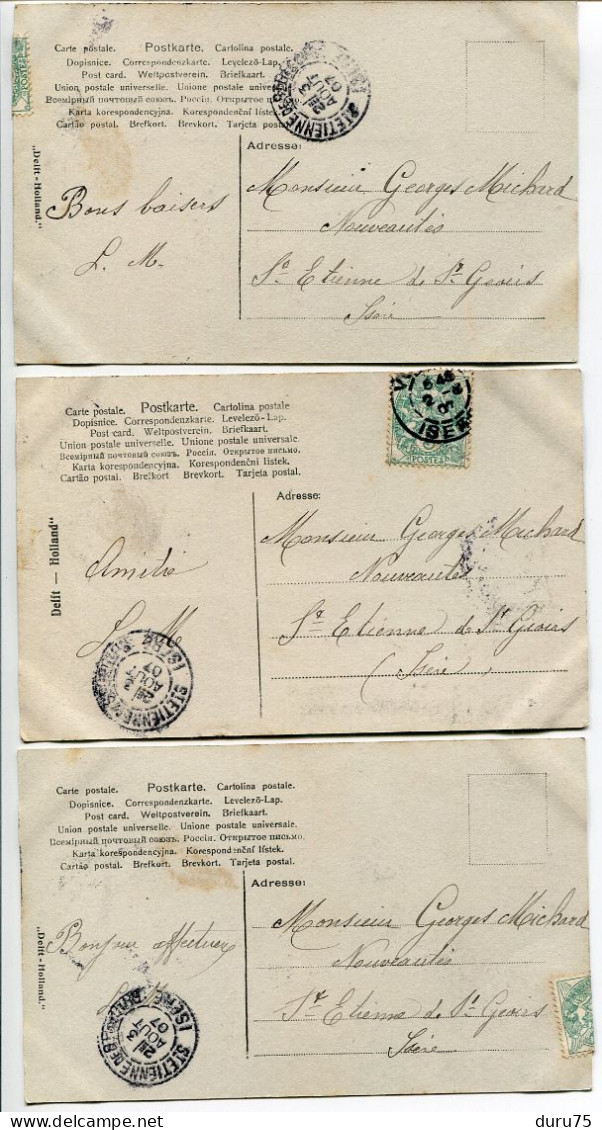 Carte postale. Postkarte. Cartolina postale.
Dopisnice. Correspondenzkarte. Levelező-Lap.
Post card. Weltpostverein. Briefkaart.
Union postale universelle. Unione postale universale.
Всемірный почтовый союзъ. Россія. Открытое
Karta korespondencyjna. Korespondenční lístek.
Cartão postal. Brefkort. Brevkort. Tarjeta postal.
"Delft - Holland."
ST ETIENNE DE
AOUT
07
Adresse:
Bons baisers
L. M.
Monsieur Georges Michard
Nouveautés
St Etienne de St Geoirs
Isère
Carte postale. Postkarte. Cartolina postale
Dopisnice. Correspondenzkarte. Levelező-Lap.
Post card. Weltpostverein. Briefkaart.
Union postale universelle. Unione postale universale.
Всемірный почтовый союзъ. Россія. Открытое письмо.
Karta korespondencyjna. Korespondenční lístek.
Cartão postal. Brefkort. Brevkort. Tarjeta postal.
ISERE
POSTES
Delft — Holland"
Adresse:
Amitié
L. M.
Monsieur Georges Michard
Nouveautés
St Etienne de St Geoirs
(Isère
ST ETIENNE
ISERE
AOUT
07
Carte postale. Postkarte. Cartolina postale.
Dopisnice. Correspondenzkarte. Levelező-Lap.
Post card. Weltpostverein. Briefkaart.
Union postale universelle. Unione postale universale.
Всемірный почтовый союзъ. Россія. Открытое письмо.
Karta korespondencyjna. Korespondenční lístek.
Cartão postal. Brefkort. Brevkort. Tarjeta postal.
"Delft-Holland."
Adresse:
Bonjour affectueux
L. M.
Monsieur Georges Michard
Nouveautés
St Etienne de St Geoirs
Isère
ST ETIENNE DE
ISERE
AOUT
07
delcampe.net
duru75